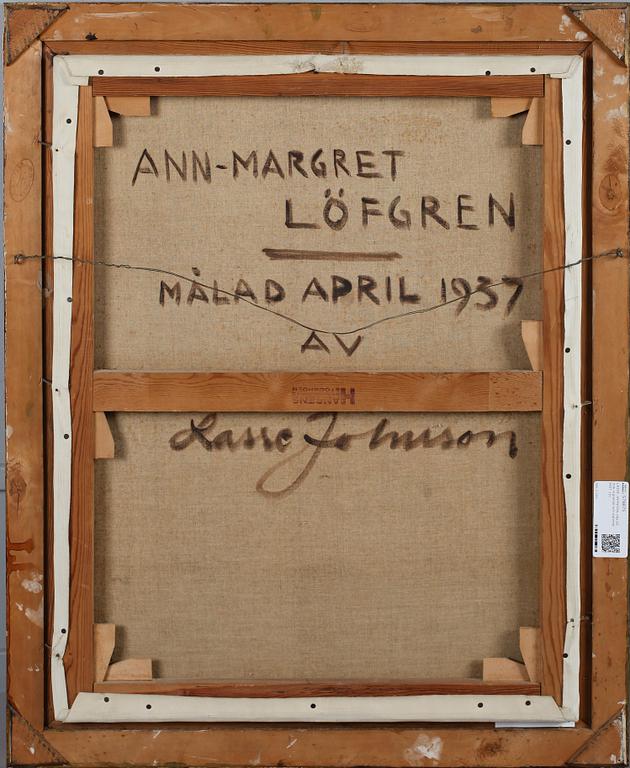 ANN-MARGRET
LÖFGREN
MÅLAD APRIL 1937
AV
Lasse Johnson